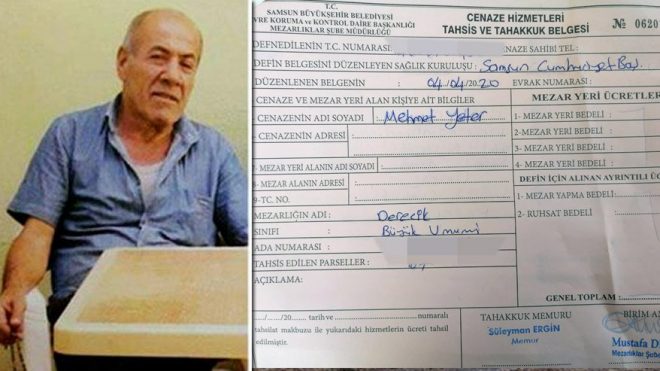 T.C.
SAMSUN BÜYÜKŞEHİR BELEDİYESİ
VRE KORUMA ve KONTROL DAİRE BAŞKANLIĞI
MEZARLIKLAR ŞUBE MÜDÜRLÜĞÜ
CENAZE HİZMETLERİ
TAHSİS ve TAHAKKUK BELGESİ
№ 0620
DEFNEDİLENİN T.C. NUMARASI
NAZE SAHİBİ TEL :
DEFİN BELGESİNİ DÜZENLEYEN SAĞLIK KURULUŞU : Samsun Cumhuriyet Baş.
DÜZENLENEN BELGENİN 04/04/2020 EVRAK NUMARASI :
- CENAZE VE MEZAR YERİ ALAN KİŞİYE AİT BİLGİLER
- CENAZENİN ADI SOYADI : Mehmet Yeter
- CENAZENİN ADRESİ :
7- MEZAR YERİ ALANIN ADI SOYADI
8- MEZAR ALANIN ADRESİ
9-TC. NO.
MEZARLIĞIN ADI : Derecik
SINIFI Büyük Umumi
ADA NUMARASI :
TAHSİS EDİLEN PARSELLER :
AÇIKLAMA:
MEZAR YERİ ÜCRETLER
1- MEZAR YERİ BEDELİ :
2-MEZAR YERİ BEDELİ :
3- MEZAR YERİ BEDELİ :
4- MEZAR YERİ BEDELİ :
DEFİN İÇİN ALINAN AYRINTILI Ü
1- MEZAR YAPMA BEDELİ :
2- RUHSAT BEDELİ :
GENEL TOPLAM :
/20 tarih ve numaralı
tahsilat makbuzu ile yukarıdaki hizmetlerin ücreti tahsil
edilmiştir.
TAHAKKUK MEMURU
Süleyman ERGİN
Memur
BİRİM A
Mustafa D
Mezarlıklar Şube